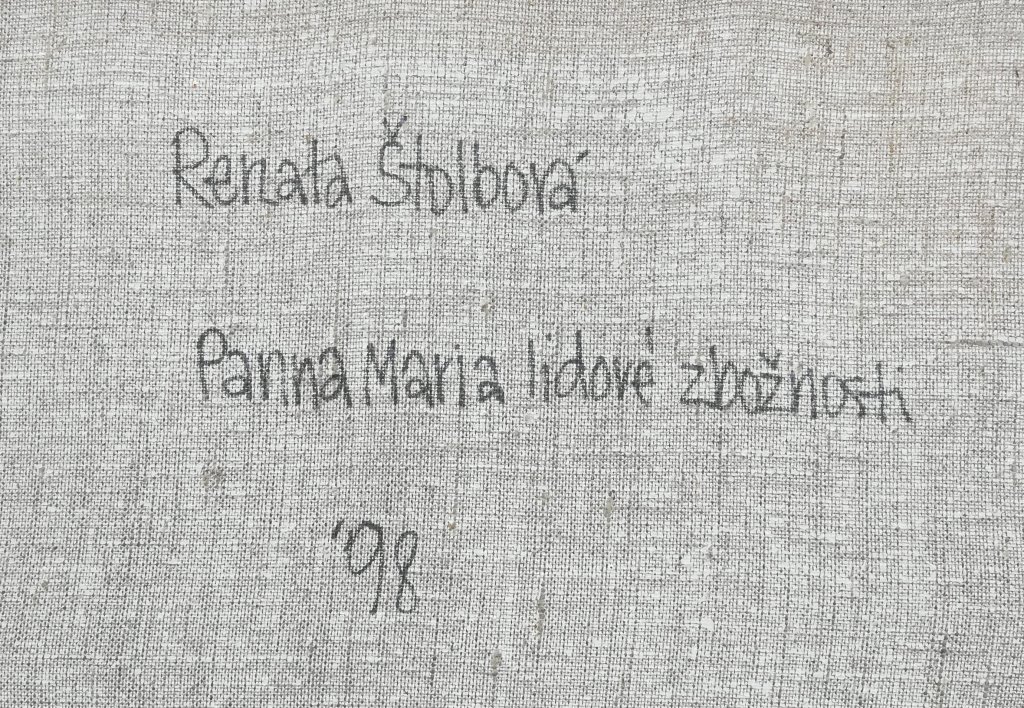 Renata Štolbová
Panna Maria lidové zbožnosti
'98